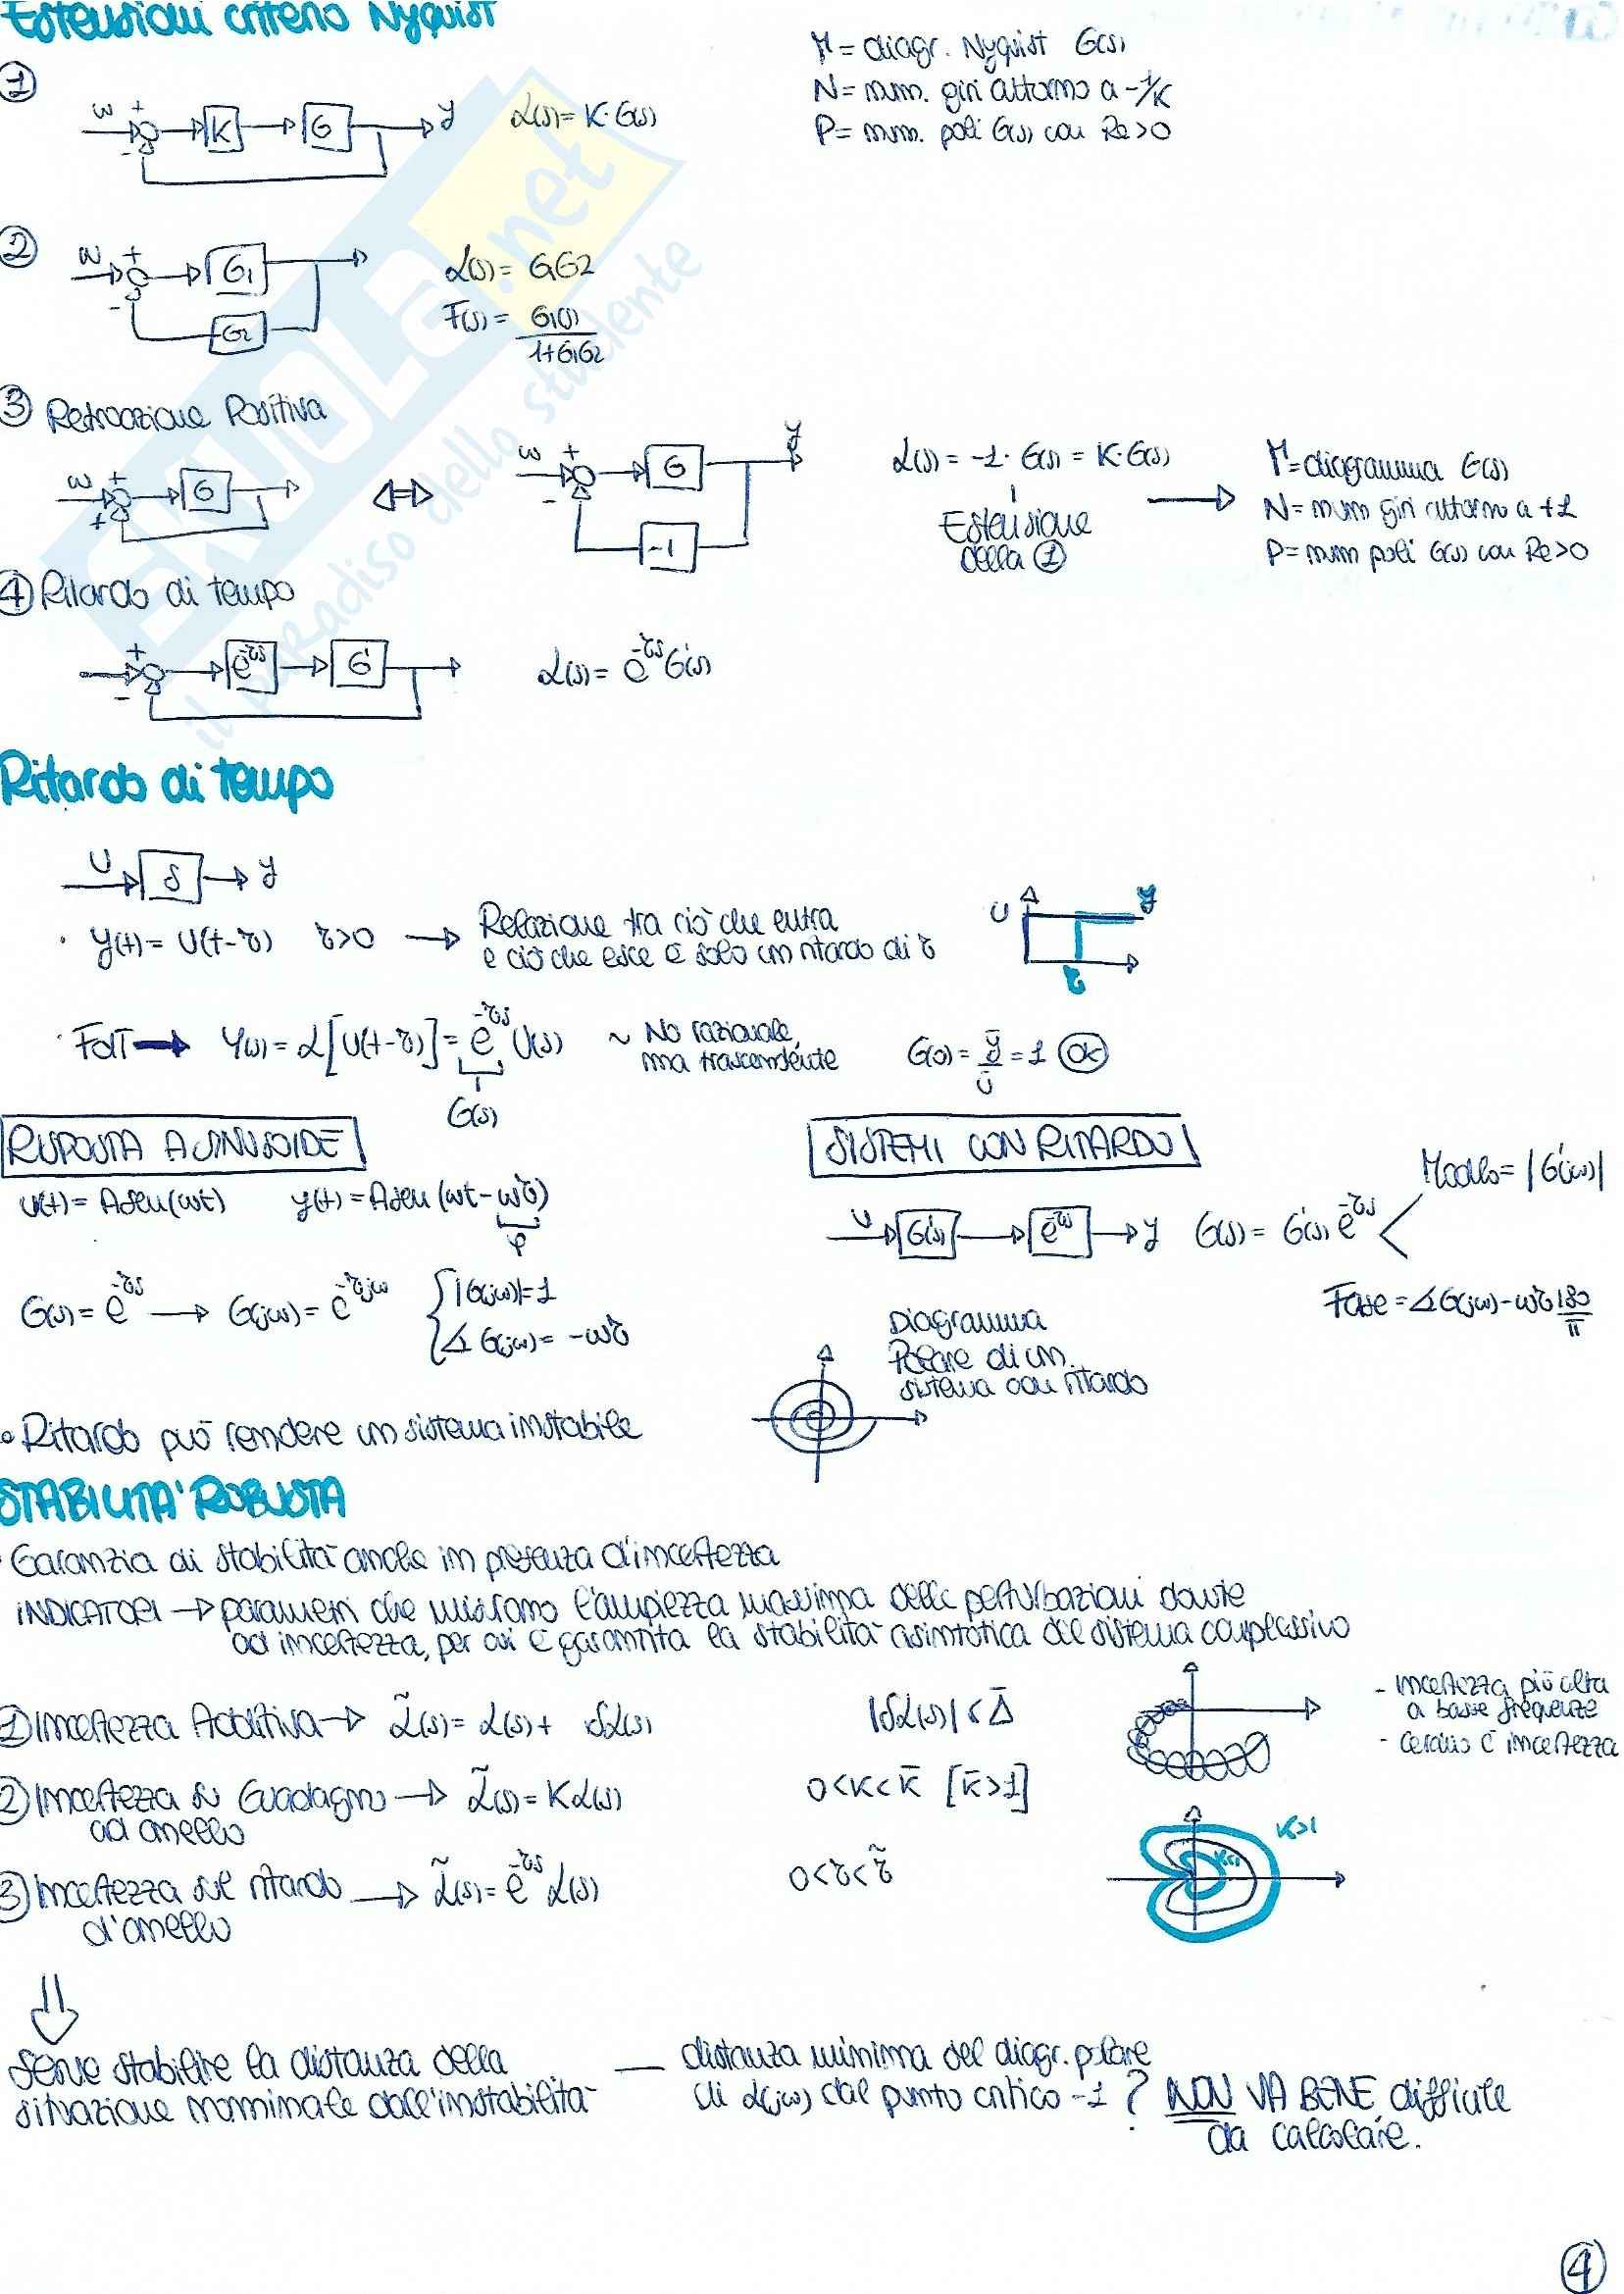 Estensioni criterio Nyquist
Γ = diagr. Nyquist G(s)
N = num. giri attorno a -1/K
P = num. poli G(s) con Re>0
①
w + - K G y L(s) = K·G(s)
②
w + - G1 G2
L(s) = GG2
F(s) = G1(s) / 1+G1G2
③ Retroazione Positiva
w + + G
⇔
w + - G y -1
L(s) = -1· G(s) = K·G(s)
Estensione
della ①
Γ = diagramma G(s)
N = num giri attorno a +1
P = num poli G(s) con Re>0
④ Ritardo di tempo
+ - e^-τs G' L(s) = e^-τs G'(s)
Ritardo di tempo
U δ y
· y(t) = U(t-τ) τ>0 → Relazione tra ciò che entra
e ciò che esce è solo un ritardo di τ
U y τ
· FdT → Y(s) = L[U(t-τ)] = e^-τs U(s) ~ No razionale,
ma trascendente
G(s)
G(0) = ȳ/ū = 1 OK
RISPOSTA A SINUSOIDE
U(t) = Asen(ωt) y(t) = Asen(ωt-ωτ)
φ
G(s) = e^-τs → G(jω) = e^-τjω { |G(jω)|=1
∡ G(jω) = -ωτ
SISTEMI CON RITARDO
U G'(s) e^-τs y G(s) = G'(s) e^-τs
Modulo = |G'(jω)|
Fase = ∡G(jω) - ωτ 180/π
Diagramma
Polare di un
sistema con ritardo
• Ritardo può rendere un sistema instabile
STABILITA' ROBUSTA
· Garanzia di stabilità anche in presenza d'incertezza
INDICATORI → parametri che misurano l'ampiezza massima delle perturbazioni dovute
ad incertezza, per cui è garantita la stabilità asintotica del sistema complessivo
① Incertezza Additiva → L̃(s) = L(s) + δL(s) |δL(s)| < Δ̄
- incertezza più alta
a basse frequenze
- cerchio è incertezza
② Incertezza su Guadagno → L̃(s) = K L(s) 0<K<K̄ [K̄>1]
ad anello
K>1
K<1
③ Incertezza sul ritardo → L̃(s) = e^-τs L(s) 0<τ<τ̃
d'anello
⇓
Serve stabilire la distanza della
situazione nominale dall'instabilità
— distanza minima del diagr. polare
di L(jω) dal punto critico -1 ? NON VA BENE, difficile
da calcolare.
④
SKUOLA.net
il paradiso dello studente